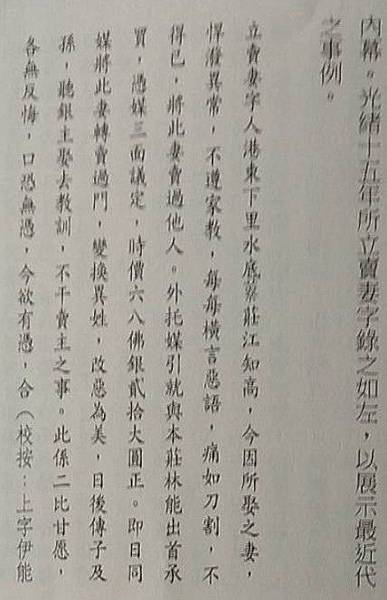 內幕。光緒十五年所立賣妻字錄之如左，以展示最近代
之事例。
立賣妻字人港東下里水底藔莊江知高，今因所娶之妻，
悍潑異常，不遵家教，每每橫言惡語，痛如刀割，不
得已，將此妻賣過他人。外托媒引就與本莊林能出首承
買，憑媒三面議定，時價六八佛銀貳拾大圓正。即日同
媒將此妻轉賣過門，變換異姓，改惡為美，日後傳子及
孫，聽銀主娶去教訓，不干賣主之事。此係二比甘愿，
各無反悔，口恐無憑，今欲有憑，合（校按：上字伊能